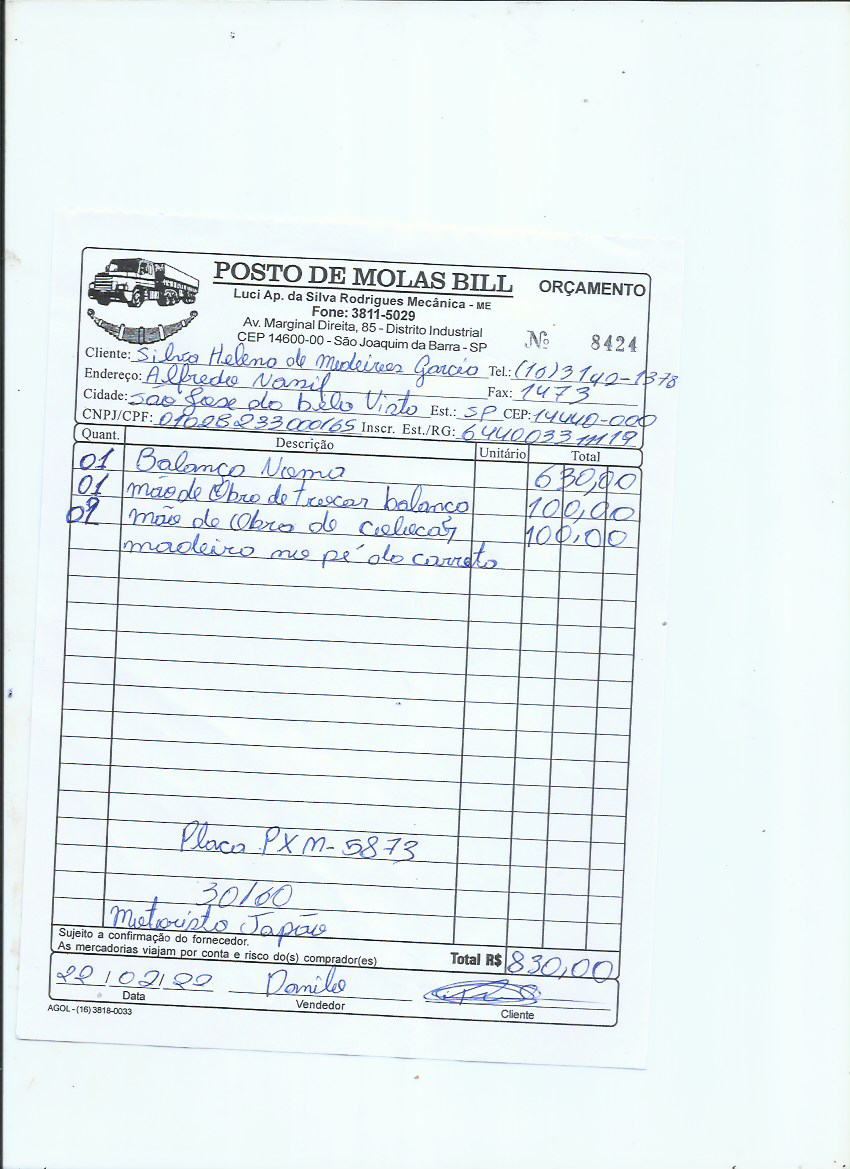 POSTO DE MOLAS BILL
ORÇAMENTO
Luci Ap. da Silva Rodrigues Mecânica - ME
Fone: 3811-5029
Av. Marginal Direita, 85 - Distrito Industrial
CEP 14600-00 - São Joaquim da Barra - SP
Nº 8424
Cliente: Silvia Helena de Medeiros Garcia Tel.: (16) 3142-1378
Endereço: Alfredo Nassif Fax: 1473
Cidade: São Jose do bela Vista Est.: SP CEP: 14440-000
CNPJ/CPF: 01028233000165 Inscr. Est./RG: 6440033
Quant. Descrição Unitário Total
01 Balança 630,00
01 mão de Obra de trocar balança 100,00
mão de Obra de colocar 100,00
madeira no pé do carreta
Placa PXM-5873
30/60
Motorista Japão
Sujeito a confirmação do fornecedor.
As mercadorias viajam por conta e risco do(s) comprador(es)
Total R$ 830,00
22/02/22 Danilo
Data Vendedor Cliente
AGOL - (16) 3818-0033